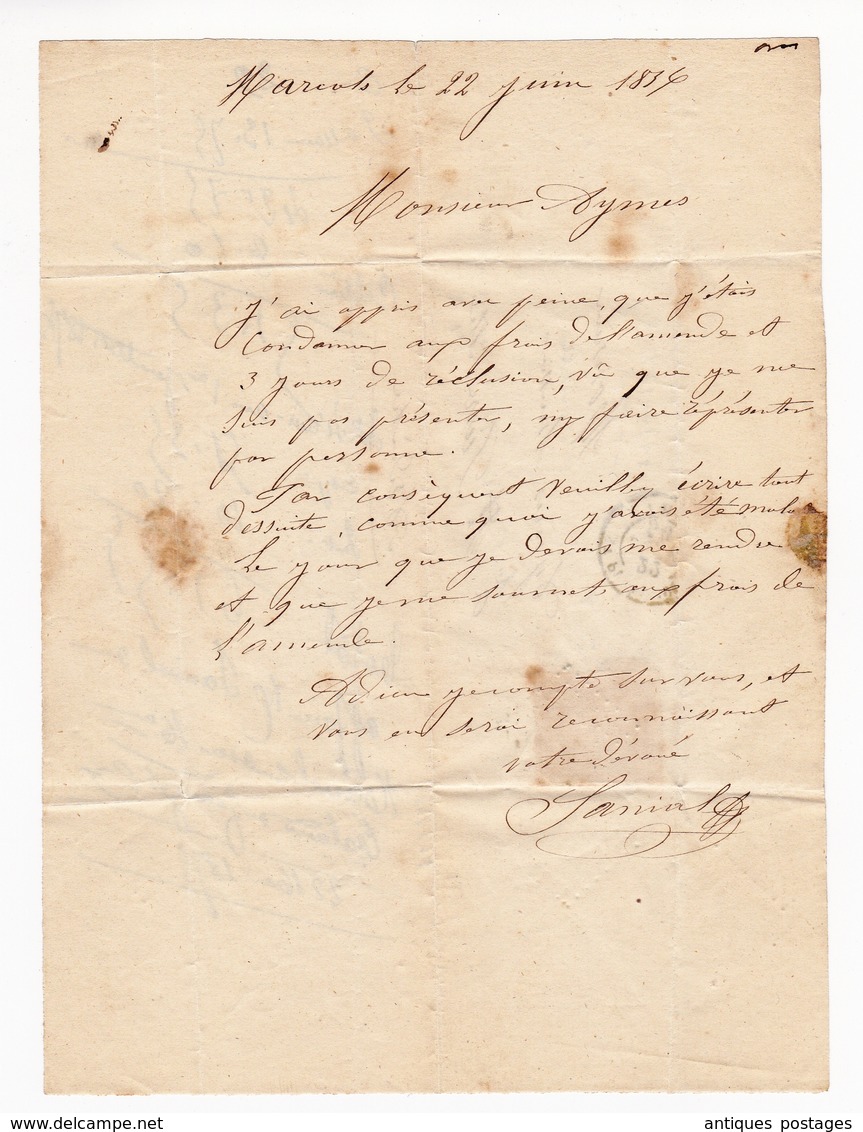 Marcols le 22 juin 1854
Monsieur Aymes
J'ai appris avec peine, que j'étais
Condamner aux frais de l'amende et
3 jours de réclusion, vû que je me
suis pas présenter, ny faire réprésenter
par personne.
Par consèquent veuillez écrire tout
dessuite, comme quoi j'avais été malade
Le jour que je devais me rendre
et que je me soumet aux frais de
l'amende.
Adieu je compte sur vous, et
vous en serai reconnaissant
votre dévoué
Sanial
antiques postages